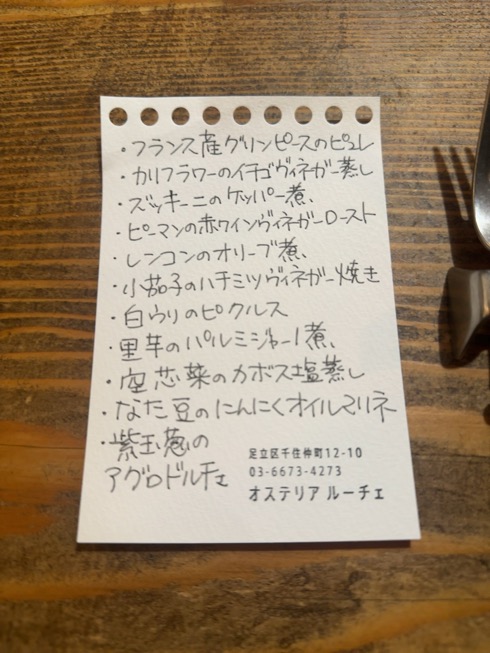 ・フランス産グリンピースのピュレ
・カリフラワーのイチゴヴィネガー蒸し
・ズッキーニのケッパー煮、
・ピーマンの赤ワインヴィネガーロースト
・レンコンのオリーブ煮、
・小茄子のハチミツヴィネガー焼き
・白ウリのピクルス
・里芋のパルミジャーノ煮、
・空芯菜のカボス塩蒸し
・なた豆のにんにくオイルマリネ
・紫玉葱の
アグロドルチェ
足立区千住仲町12-10
03-6673-4273
オステリア ルーチェ